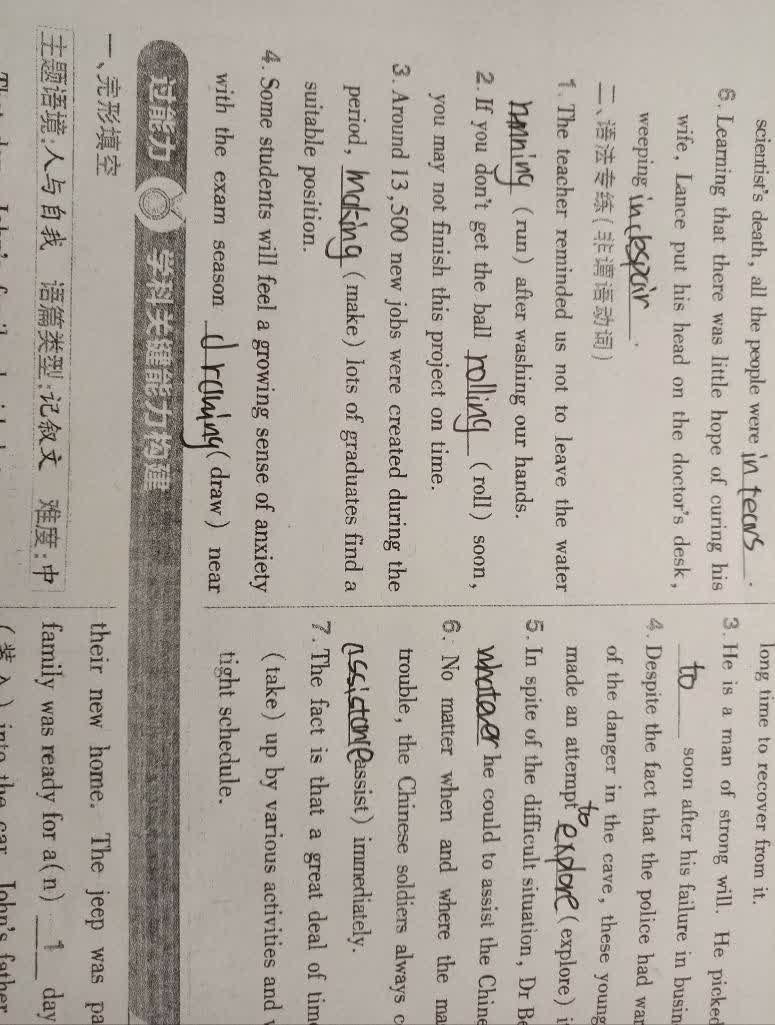 scientist's death, all the people were in tears.
6. Learning that there was little hope of curing his
wife, Lance put his head on the doctor's desk,
weeping in despair.
二、语法专练(非谓语动词)
1. The teacher reminded us not to leave the water
running (run) after washing our hands.
2. If you don't get the ball rolling (roll) soon,
you may not finish this project on time.
3. Around 13,500 new jobs were created during the
period, making (make) lots of graduates find a
suitable position.
4. Some students will feel a growing sense of anxiety
with the exam season drawing (draw) near
记能力 学科关键能力构建
一、完形填空
主题语境:人与自我 语篇类型:记叙文 难度:中
long time to recover from it.
3. He is a man of strong will. He picked
to soon after his failure in busin
4. Despite the fact that the police had war
of the danger in the cave, these young
made an attempt to explore (explore) i
5. In spite of the difficult situation, Dr Be
whatever he could to assist the Chine
6. No matter when and where the ma
trouble, the Chinese soldiers always c
(assist) immediately.
7. The fact is that a great deal of tim
(take) up by various activities and
tight schedule.
their new home. The jeep was pa
family was ready for a(n) 1 day
(装入) into the car. John's father